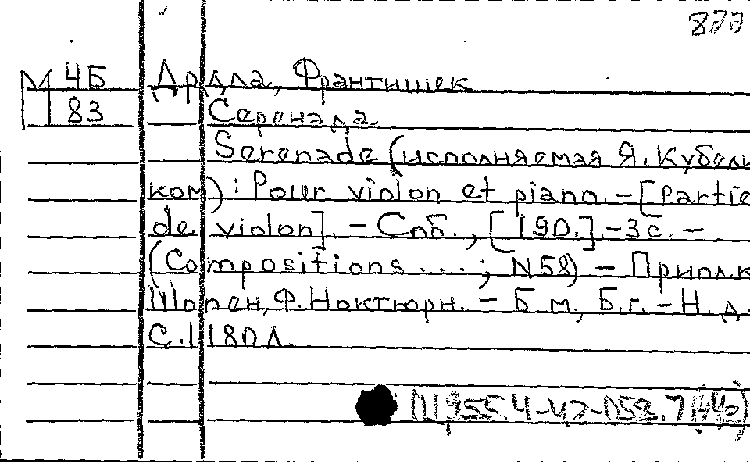 877
М 4Б Дрдла, Франтишек
83 Серенада
Serenade (исполняемая Я. Кубели
ком): Pour violon et piano. - [Partie
de violon]. - Спб., [190.] - 3 с. -
(Compositions ...; N58) - Прилож
Шопен, Ф. Ноктюрн. - Б.м., Б.г. - Н.д.
С.1180Л.